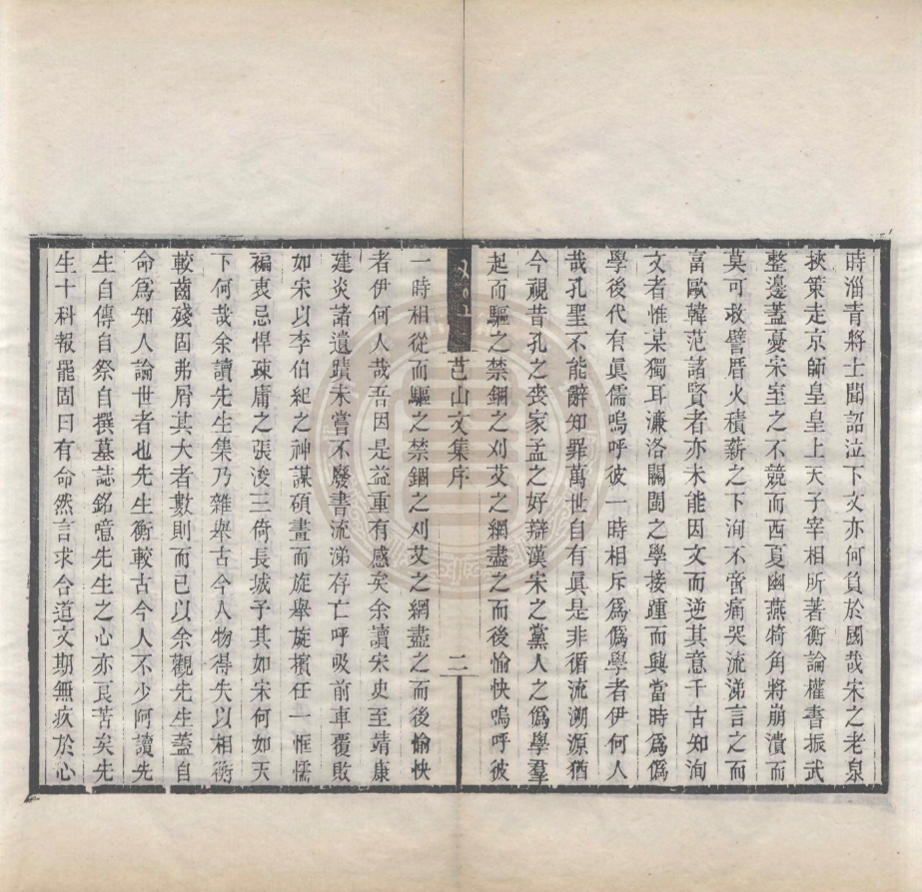 時淄青將士聞詔泣下文亦何負於國哉宋之老泉
挾策走京師皇皇上天子宰相所著衡論權書振武
整邊蓋憂宋室之不競而西夏幽燕犄角將崩潰而
莫可救譬厝火積薪之下洵不啻痛哭流涕言之而
富歐韓范諸賢者亦未能因文而逆其意千古知洵
文者惟某獨耳濂洛關閩之學接踵而興當時爲僞
學後代有眞儒嗚呼彼一時相斥爲僞學者伊何人
哉孔聖不能辭知罪萬世自有眞是非循流溯源猶
今視昔孔之喪家孟之好辯漢宋之黨人之僞學羣
起而驅之禁錮之刈艾之網盡之而後愉快嗚呼彼
芑山文集序
二
一時相從而驅之禁錮之刈艾之網盡之而後愉快
者伊何人哉吾因是益重有感矣余讀宋史至靖康
建炎諸遺蹟未嘗不廢書流涕存亡呼吸前車覆敗
如宋以李伯紀之神謀碩畫而旋舉旋擯任一恇懦
褊衷忌悍疎庸之張浚三倚長城予其如宋何如天
下何哉余讀先生集乃雜舉古今人物得失以相衡
較齒殘固弗屑其大者數則而已以余觀先生蓋自
命爲知人論世者也先生衡較古今人不少阿讀先
生自傳自祭自撰墓誌銘噫先生之心亦良苦矣先
生十科報罷固曰有命然言求合道文期無疚於心